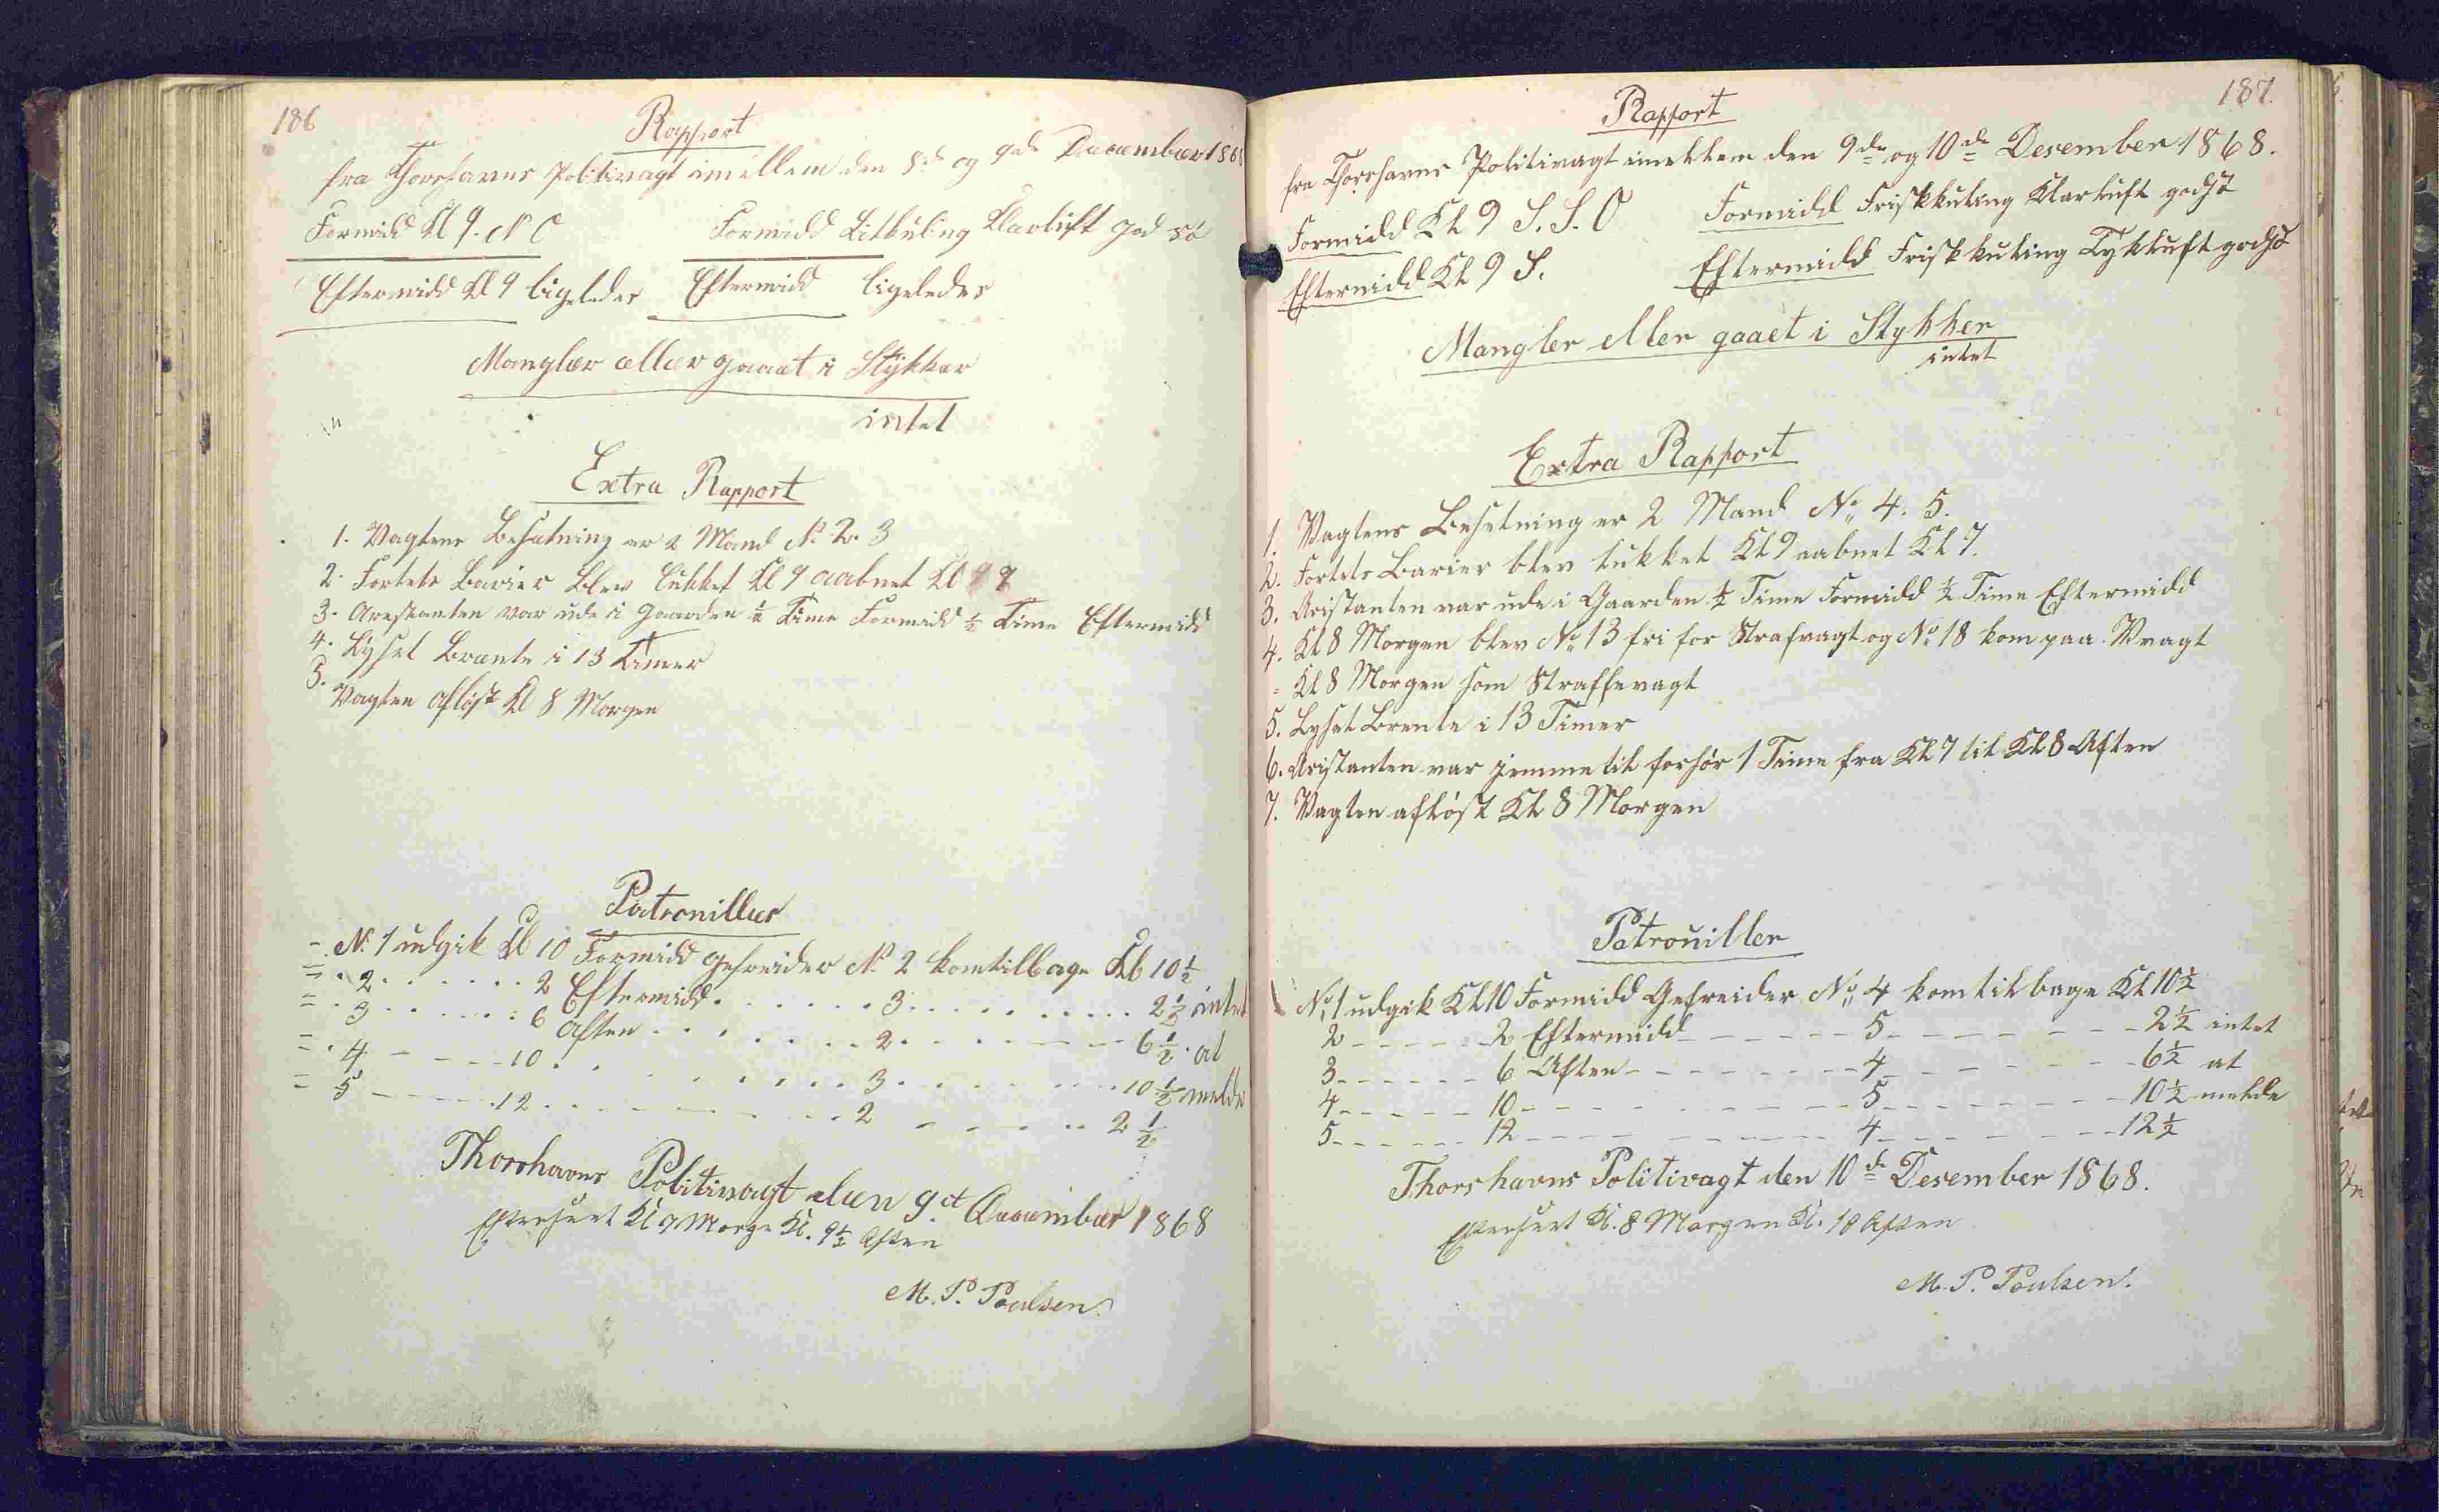 186
Rapport
fra Thorshavns Politivagt imellem den 8de og 9de Decæmber 186
Formidd Kl 9. N O Formidd Litkuling Klarluft god sö
Eftermidd Kl 9 ligeledes Eftermidd ligeledes
Mangler eller gaaet i Stÿkker
intet
Extra Rapport
1. Vagtens Besætning er 2 Mand No 2. 3
2. Fortets Barier blev lukket Kl 9 aabnet Kl 7
3. Arestanten var ude i Gaarden ½ Time Formidd ½ Time Eftermidd
4. Lyset Brænte i 13 Timer
5.
Vagten afløst Kl 8 Morgen
Patrouiller
= No 1 udgik Kl 10 Formidd Gefreider No 2 kom tilbage Kl 10 ½
= . 2 . . . . . . 2 Eftermidd . . . . . . . 3 . . . . . . . . . . 2 ½ intet
= . 3 . . . . . . 6 Aften . . . . . . . 2 . . . . . - - - - 6 ½ . at
= . 4 - - - - 10 . . . . . . . . . 3 . . . . . . . . . 10 ½ melde
= 5 - - - - . 12 . . . - - - - - . . 2 - - - - - - 2 ½
Thorshavns Politivagt den 9de Decæmber 1868
Efterseet Kl 9 Morge Kl. 9½ Aften
M. P. Poulsen.
187.
Rapport
fra Thorshavns Politivagt imellem den 9de og 10de Desember 1868.
Formidd Kl 9 S. S. O Formidd Friskkuling Klarluft godsö
Eftermidd Kl 9 S. Eftermidd Friskkuling Tykluft godsö
Mangler eller gaaet i Stykker
intet
Extra Rapport
1. Vagtens Besetning er 2 Mand No 4. 5.
2. Fortets Barier blev lukket Kl 9 aabnet Kl 7.
3. Aristanten var ude i Gaarden ½ Time Formidd ½ Time Eftermidd
4. Kl 8 Morgen blev No 13 fri for Strafvagt og No 18 kom paa. Vvagt
= Kl 8 Morgen som Straffevagt
5. Lyset Brente i 13 Timer
6. Aristanten var jemme til forhör 1 Time fra Kl 7 til Kl 8 Aften
7. Vagten aflöst Kl 8 Morgen
Patrouiller
No 1 udgik Kl 10 Formidd Gefreider No 4 kom tilbage Kl 10½
2 - - - - - - 2 Eftermidd - - - - - - 5 - - - - - - - - 2½ intet
3 - - - - - - 6 Aften - - - - - - - - 4 - - - - - - - 6½ at
4 - - - - - - 10 - - - - - - - - - 5 - - - - - - - - 10½ melde
5 - - - - - - 12 - - - - - - - - - 4 - - - - - - - 12½
Thorshavns Politivagt den 10de Desember 1868.
Efterseet Kl. 8 Morgen Kl. 10 Aften
M. P. Poulsen.